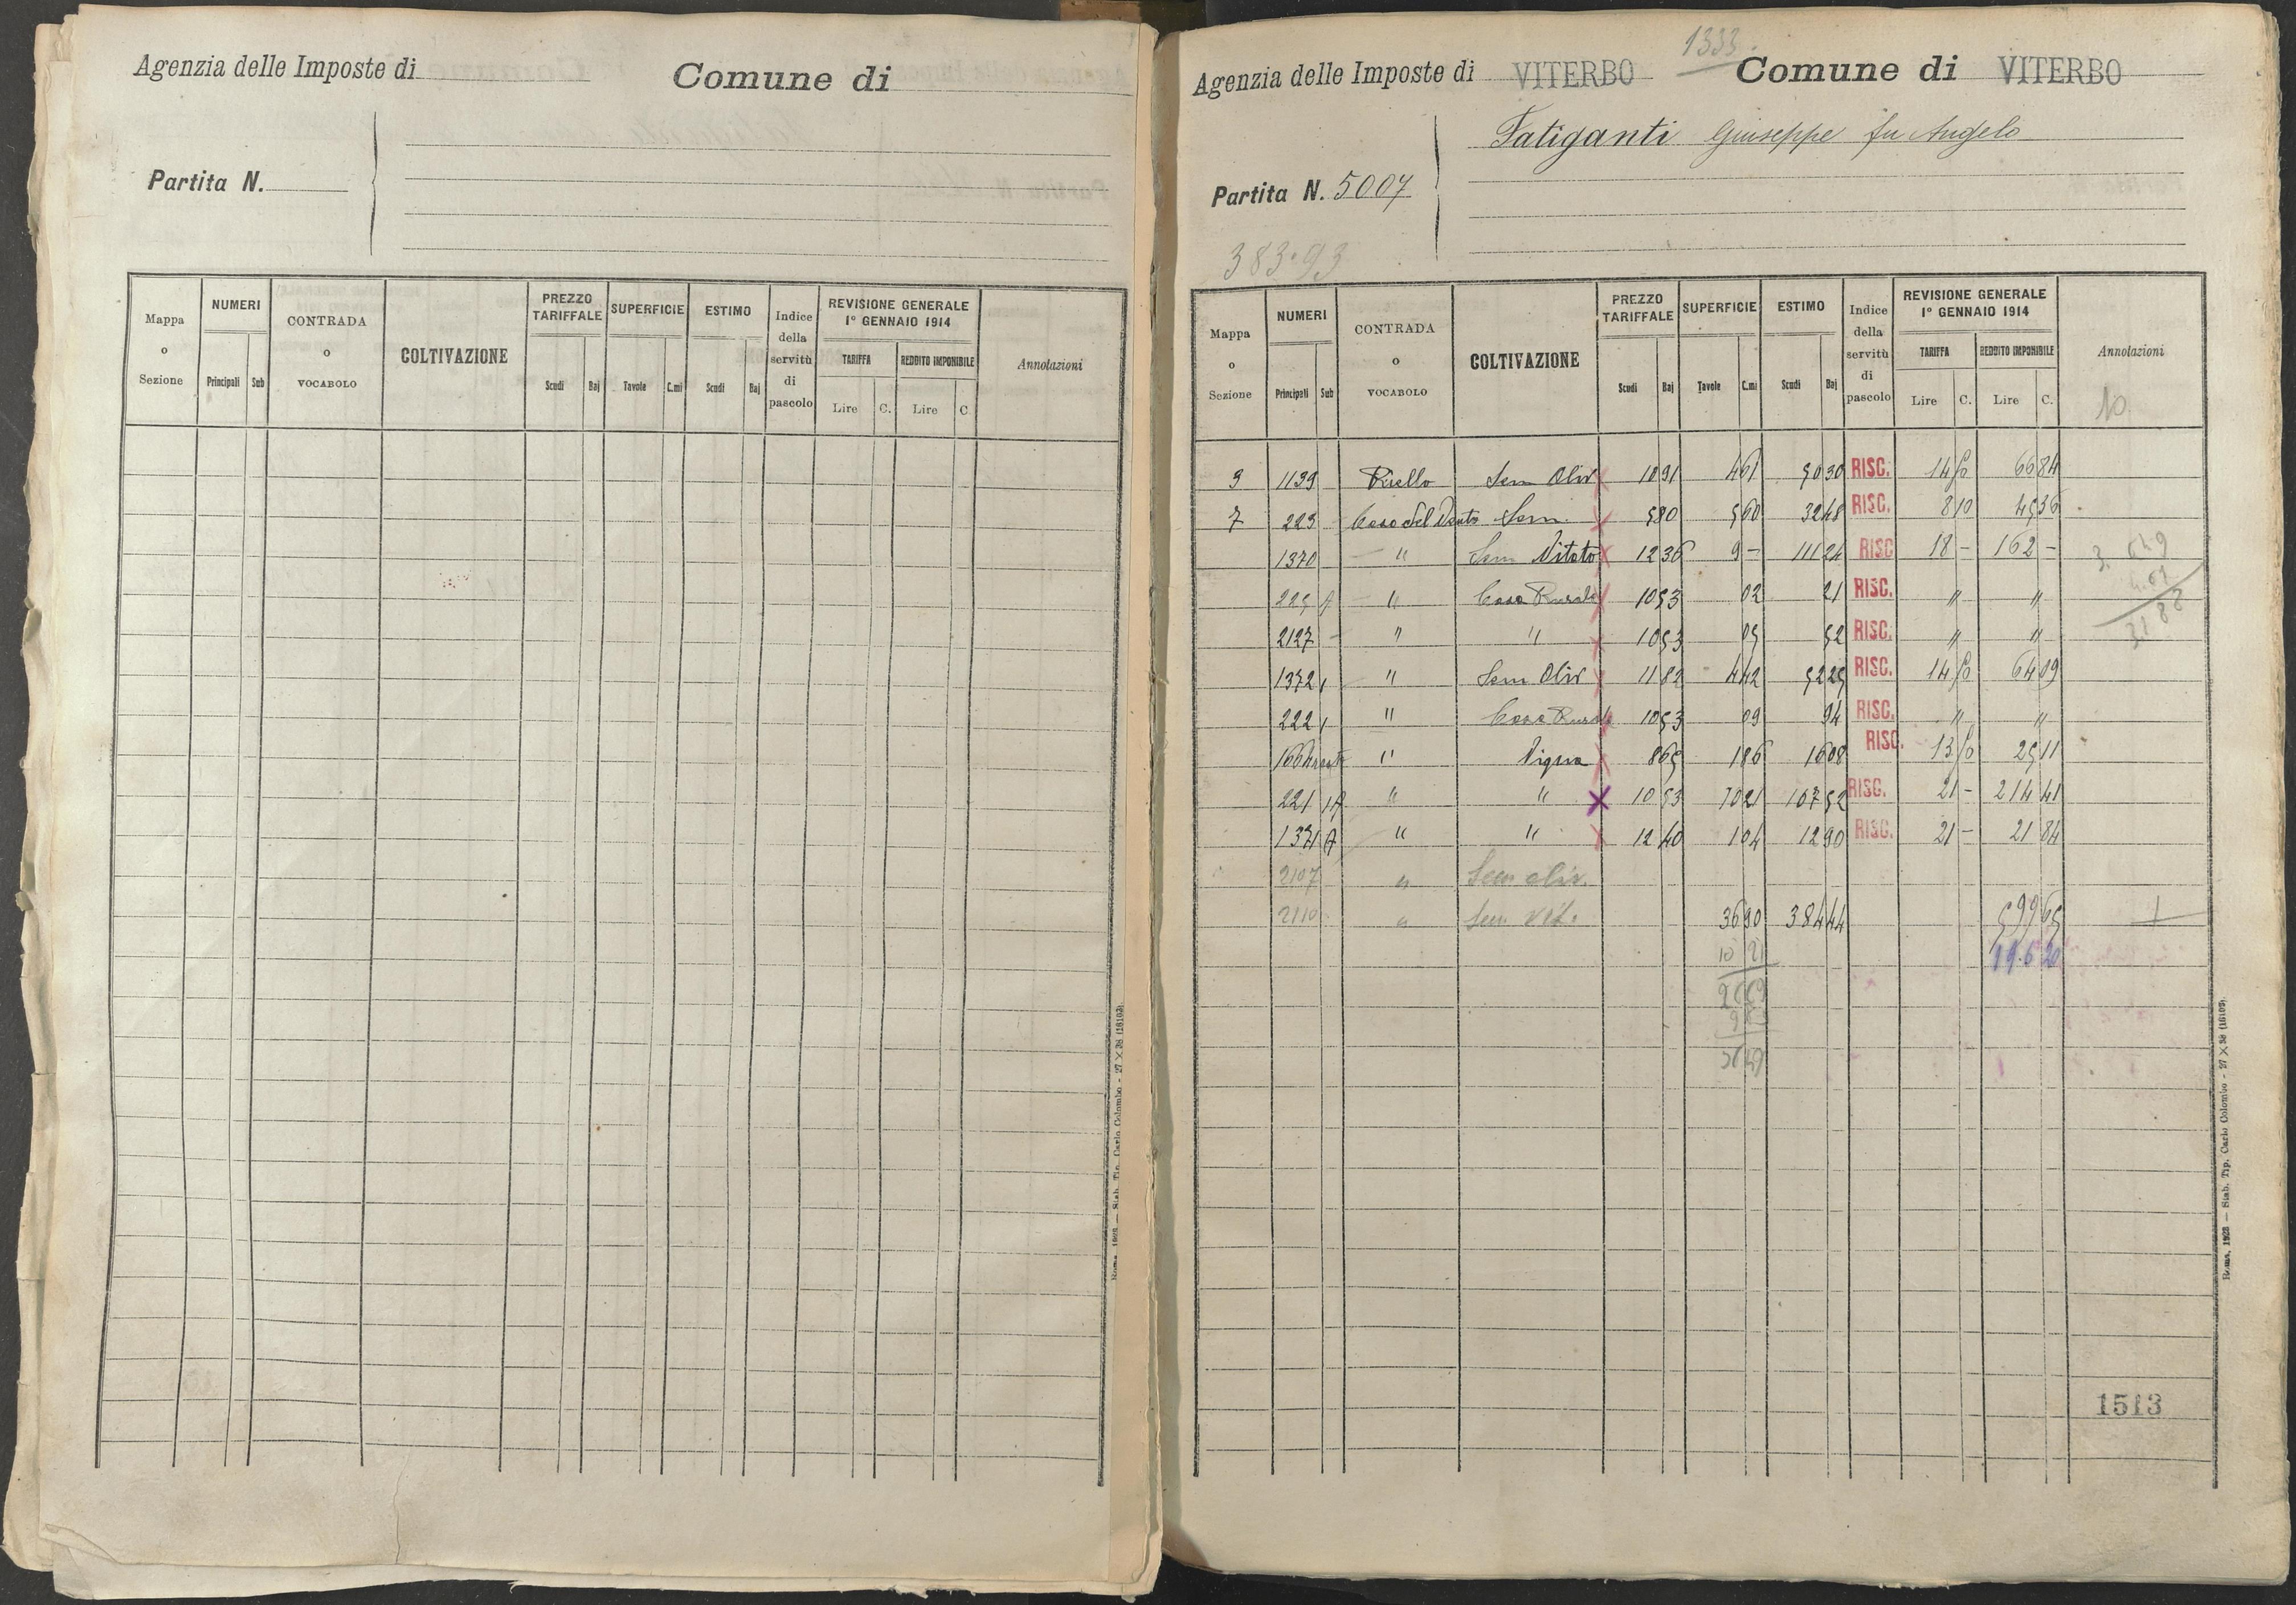 Agenzia delle Imposte di
Comune di
Partita N.
Mappa o Sezione | NUMERI Principali Sub | CONTRADA o VOCABOLO | COLTIVAZIONE | PREZZO TARIFFALE Scudi Baj | SUPERFICIE Tavole C.mi | ESTIMO Scudi Baj | Indice della servitù di pascolo | REVISIONE GENERALE 1° GENNAIO 1914 TARIFFA Lire C. REDDITO IMPONIBILE Lire C. | Annotazioni
Roma, 1923 — Stab. Tip. Carlo Colombo - 27 × 38 (16103).
1333.
Agenzia delle Imposte di VITERBO Comune di VITERBO
Fatiganti Giuseppe fu Angelo
Partita N. 5007
383.93
Mappa o Sezione | NUMERI Principali Sub | CONTRADA o VOCABOLO | COLTIVAZIONE | PREZZO TARIFFALE Scudi Baj | SUPERFICIE Tavole C.mi | ESTIMO Scudi Baj | Indice della servitù di pascolo | REVISIONE GENERALE 1° GENNAIO 1914 TARIFFA Lire C. REDDITO IMPONIBILE Lire C. | Annotazioni
3 1139 Riello Sem Oliv 10 91 4 61 50 30 RISC. 14 50 66 84
7 223 Casa del Sem. 5 80 5 60 32 48 RISC. 8 10 45 36
1370 " Sem Vitato 12 36 9 - 111 24 RISC 18 - 162 -
225 " Casa Rurale 10 53 02 21 RISC. " "
2127 - " " 10 53 05 52 RISC. " "
1372 1 " Sem Oliv 11 82 4 42 52 25 RISC. 14 50 64 09
222 1 " Casa Rurale 10 53 09 94 RISC. " "
" Vigna 8 65 1 86 16 08 RISC. 13 50 25 11
221 1A " " X 10 53 10 21 107 52 RISC. 21 - 214 41
1371 A " " 12 40 1 04 12 90 RISC. 21 - 21 84
2107 " Sem oliv.
2110 " Sem Vit. 36 90 384 44 599 65
10 21
26 69
31 88
1513
Roma, 1923 — Stab. Tip. Carlo Colombo - 27 × 38 (16103).